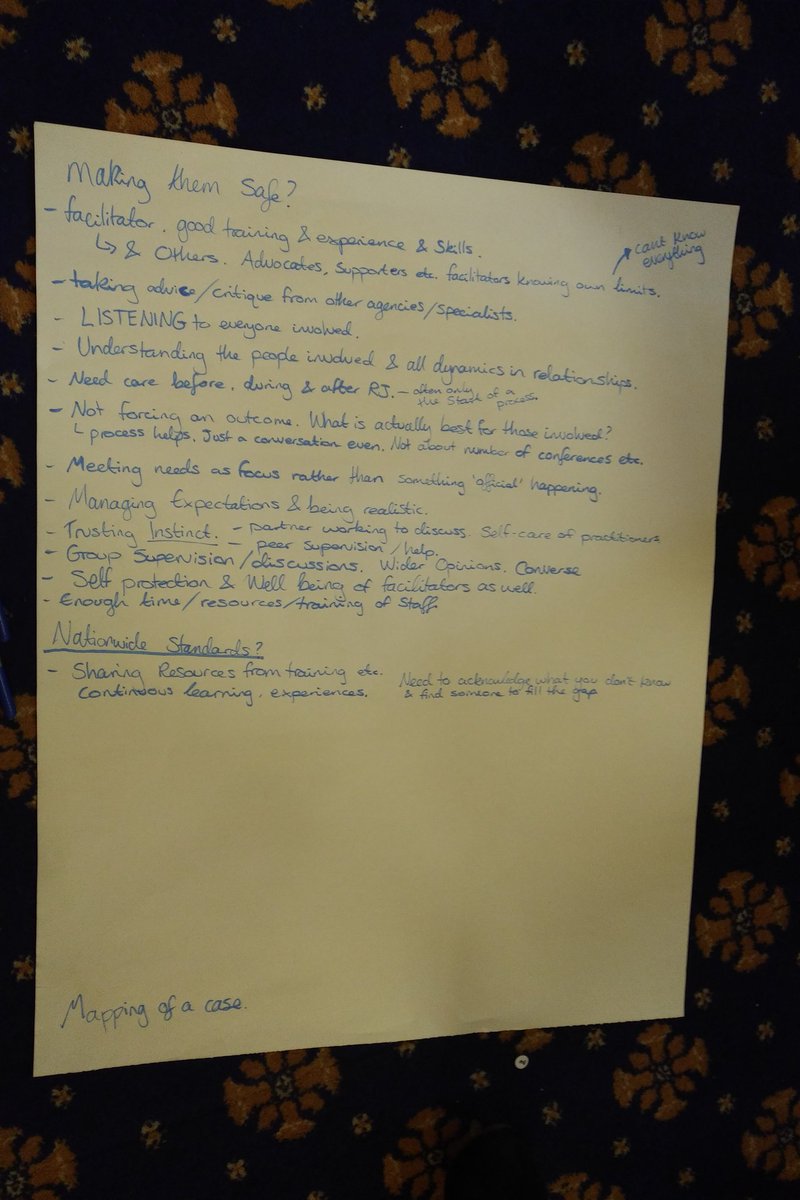 Making them safe?
- facilitator. good training & experience & skills.
↳ & Others. Advocates, Supporters etc. facilitators knowing own limits.
↗ cant know
everything
- taking advice/critique from other agencies/specialists.
- LISTENING to everyone involved.
- Understanding the people involved & all dynamics in relationships.
- Need care before, during & after RJ. - often only
the start of a
process.
- Not forcing an outcome. What is actually best for those involved?
↳ process helps. Just a conversation even. Not about number of conferences etc.
- Meeting needs as focus rather than something 'official' happening.
- Managing Expectations & being realistic.
- Trusting Instinct. - partner working to discuss. Self-care of practitioners
- peer supervision/help.
- Group Supervision/discussions. Wider Opinions. Converse
- Self protection & Well being of facilitators as well.
- Enough time/resources/training of staff.
Nationwide Standards?
- Sharing Resources from training etc.
continuous learning. experiences.
Need to acknowledge what you don't know
& find someone to fill the gap
Mapping of a case.